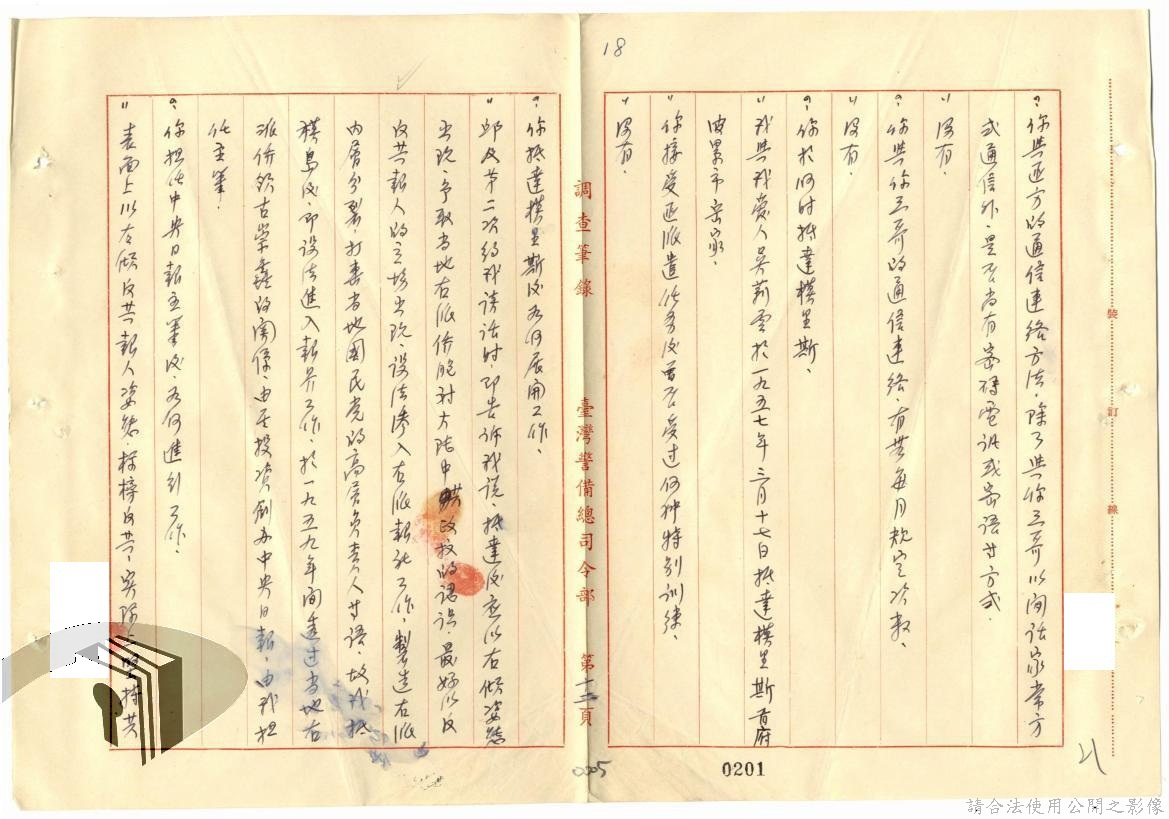 18
？你與匪方的通信連絡方法，除了與你三哥以閒話家常方
式通信外，是否尚有密碼電訊或密語等方式．
：沒有．
？你與你三哥的通信連絡，有無每月規定次數、
：沒有．
？你於何時抵達模里斯、
：我與我愛人吳莉雲於一九五七年三月十七日抵達模里斯首府
波累市岳家．
？你接受匪派遣任務後曾否受过何种特别訓練、
：沒有．
調查筆錄
臺灣警備總司令部
第十二頁
裝
訂
線
？你抵達模里斯後如何展開工作、
：邱及第二次約我談話時，即告訴我說，抵達後應以右傾姿態
出現，争取当地右派僑胞对大陸中共政权的認識，最好以反
反共報人的立場出現，設法滲入右派報社工作，製造右派
内層分裂，打擊当地國民党的高層負責人等語，故我抵
模島後，即設法進入報界工作，於一九五九年間透过当地右
派僑領古榮鑫的關係，由其投資創办中央日報，由我担
任主筆．
？你担任中央日報主筆後，如何進行工作、
：表面上以右傾反共報人姿態，标榜反共，實际上堅持共
0005
0201
21
請合法使用公開之影像